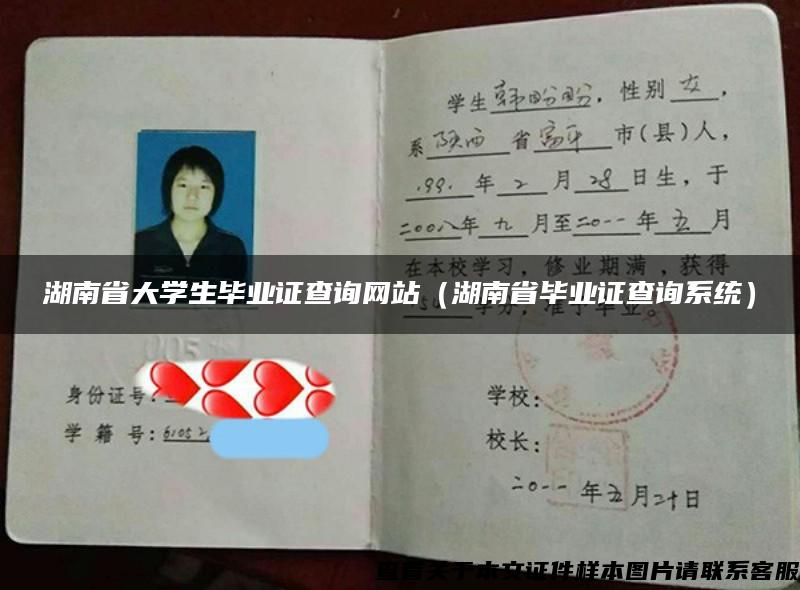 学生韩盼盼，性别女，
系陕西省富平市(县)人，
1991年2月28日生，于
二00八年九月至二0一一年五月
在本校学习，修业期满，获得
湖南省大学生毕业证查询网站（湖南省毕业证查询系统）
学分，准予毕业。
身份证号：
学籍号：61052
学校：
校长：
二0一一年五月二十日
查看关于本文证件样本图片请联系客服